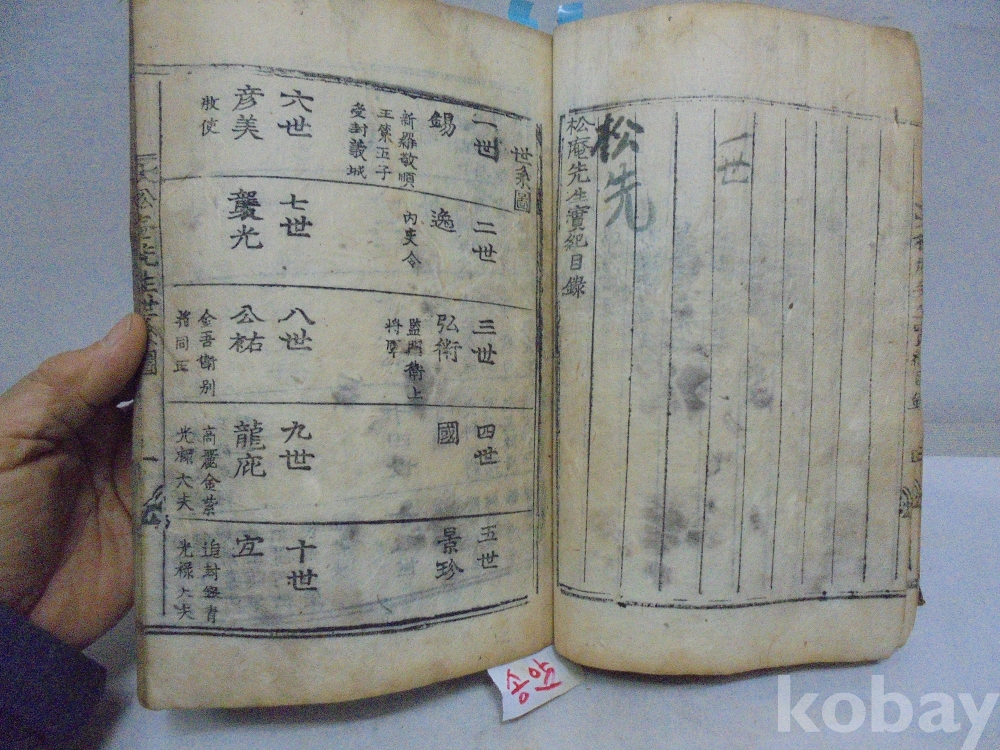 松庵先生實紀目錄
松先
一世
世系圖
一世
錫
新羅敬順
王第五子
受封義城
二世
逸
內史令
三世
弘術
監門衛上
將軍
四世
國
五世
景珍
六世
彦美
牧使
七世
襲光
八世
公祐
金吾衛別
將同正
九世
龍庇
高麗金紫
光祿大夫
十世
宜
追封銀青
光祿大夫
松庵先生世系圖
一
kobay